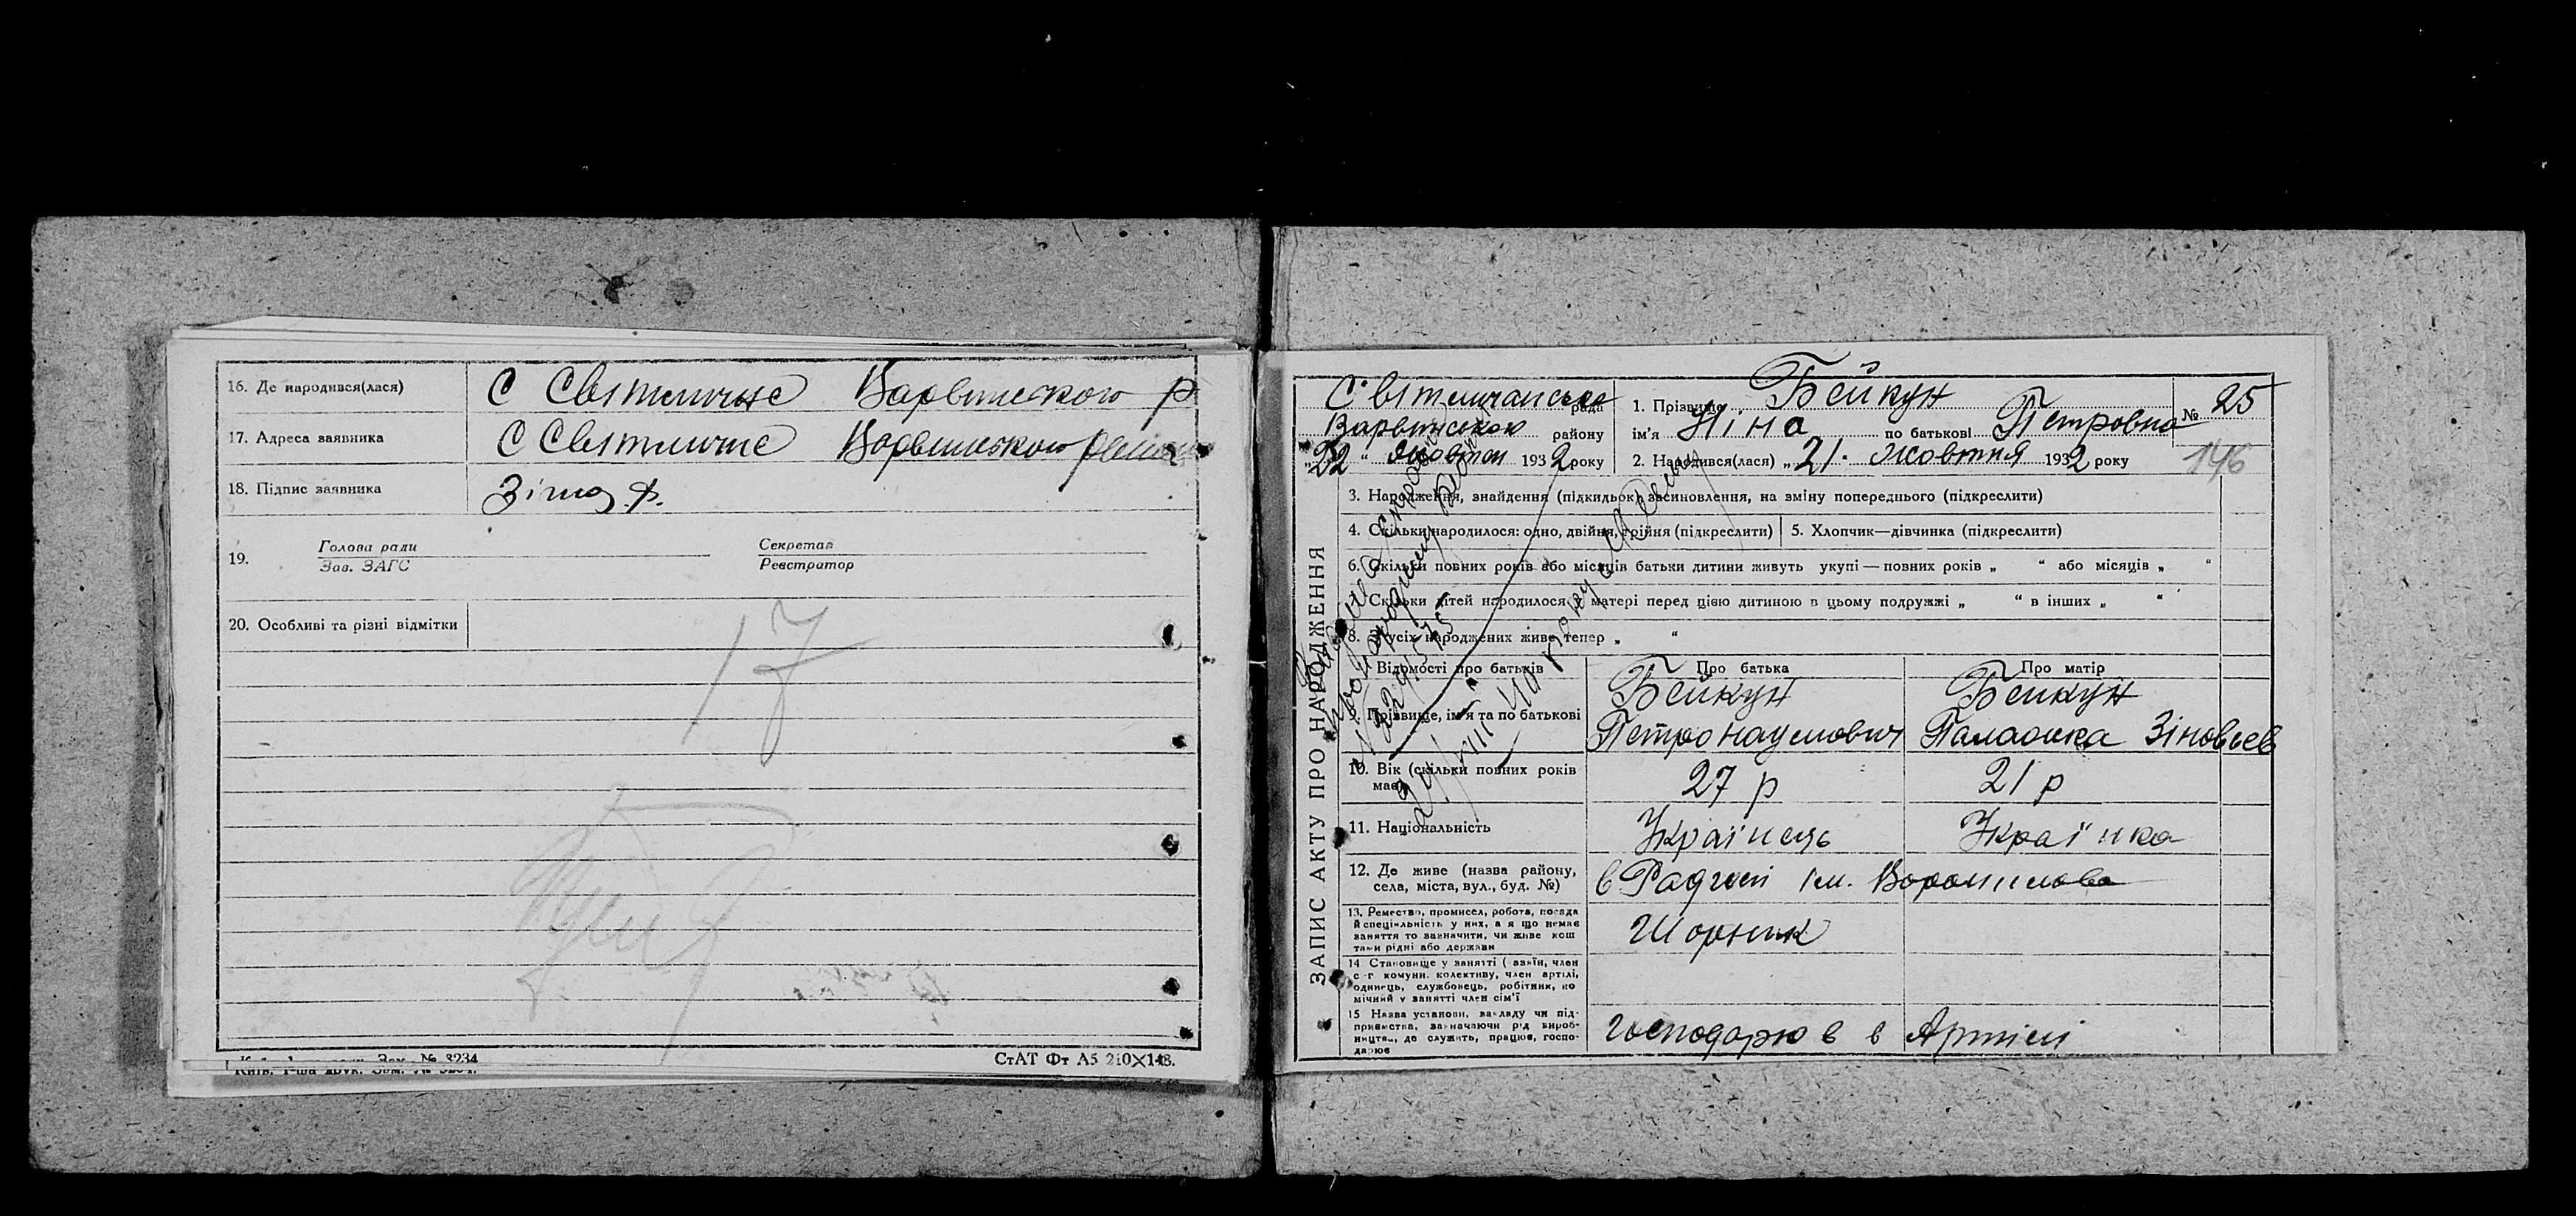 16. Де народився(лася) С Світличне Варвинского р
17. Адреса заявника С Світличне Варвинского
18. Підпис заявника
19. Голова ради Секретар
Зав. ЗАГС Реєстратор
20. Особливі та різні відмітки
17
Зам. № 3234
СтАТ Фт А5 210×148.
Світличанська рада
Варвинського району
„22“ Жовтня 1932 року
1. Прізвище Бейкун
ім'я Ніна по батькові Петровна
№ 25
2. Народився(лася) „21. Жовтня 1932 року
146
ЗАПИС АКТУ ПРО НАРОДЖЕННЯ
3. Народження, знайдення (підкидьок) засиновлення, на зміну попереднього (підкреслити)
4. Скільки народилося: одно, двійня, трійня (підкреслити) 5. Хлопчик—дівчинка (підкреслити)
6. Скільки повних років або місяців батьки дитини живуть укупі — повних років „ “ або місяців „ “
Скільки дітей народилося у матері перед цією дитиною в цьому подружжі „ “ в інших „ “
8. З усіх народжених живе тепер „ “
Відомості про батьків Про батька Про матір
Прізвище, ім'я та по батькові
Бейкун Бейкун
Петро Наумович Палажка Зіновьев
10. Вік (скільки повних років має) 27 р 21 р
11. Національність Українець Українка
12. Де живе (назва району, села, міста, вул., буд. №) в Радгосі ім. Ворошилова
13. Ремество, промисел, робота, посада й спеціяльність у них, а я що немає заняття то зазначити, чи живе кош тами рідні або держави Шорник
14 Становище у занятті ( хазяїн, член с-г комуни, колективу, член артілі, одинець, службовець, робітник, по мічний у занятті член сім'ї
15 Назва установи, закладу чи підприємства, зазначаючи рід виробництва, де служить, працює, господарює Господарює в Артілі